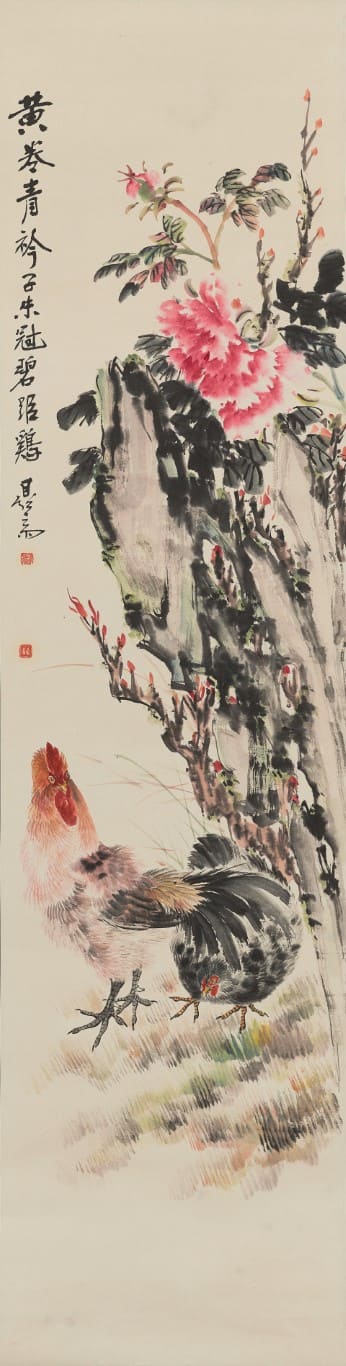 黄卷青衿子朱冠碧距鷄